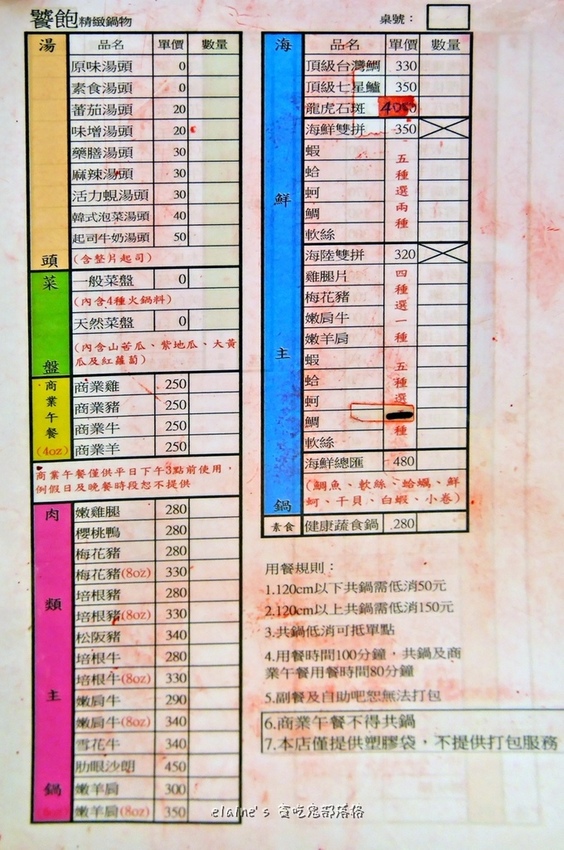 饕飽精緻鍋物
桌號：
湯頭
品名 單價 數量
原味湯頭 0
素食湯頭 0
蕃茄湯頭 20
味增湯頭 20
藥膳湯頭 30
麻辣湯頭 30
活力蜆湯頭 30
韓式泡菜湯頭 40
起司牛奶湯頭 50
(含整片起司)
菜盤
一般菜盤 0
(內含4種火鍋料)
天然菜盤 0
(內含山苦瓜、紫地瓜、大黃
瓜及紅蘿蔔)
商業午餐(4oz)
商業雞 250
商業豬 250
商業牛 250
商業羊 250
商業午餐僅供平日下午3點前使用，
例假日及晚餐時段恕不提供
肉類主鍋
嫩雞腿 280
櫻桃鴨 280
梅花豬 280
梅花豬(8oz) 330
培根豬 280
培根豬(8oz) 330
松阪豬 340
培根牛 280
培根牛(8oz) 330
嫩肩牛 290
嫩肩牛(8oz) 340
雪花牛 340
肋眼沙朗 450
嫩羊肩 300
嫩羊肩(8oz) 350
海鮮主鍋
品名 單價 數量
頂級台灣鯛 330
頂級七星鱸 350
龍虎石斑
海鮮雙拼 350
蝦
蛤
蚵
鯛
軟絲
五種選兩種
海陸雙拼 320
雞腿片
梅花豬
嫩肩牛
嫩羊肩
四種選一種
蝦
蛤
蚵
鯛
軟絲
五種選種
海鮮總匯 480
(鯛魚、軟絲、蛤蠣、鮮
蚵、干貝、白蝦、小卷)
素食 健康蔬食鍋 280
用餐規則：
1.120cm以下共鍋需低消50元
2.120cm以上共鍋需低消150元
3.共鍋低消可抵單點
4.用餐時間100分鐘，共鍋及商
業午餐用餐時間80分鐘
5.副餐及自助吧恕無法打包
6.商業午餐不得共鍋
7.本店僅提供塑膠袋，不提供打包服務
elaine's 貪吃鬼部落格